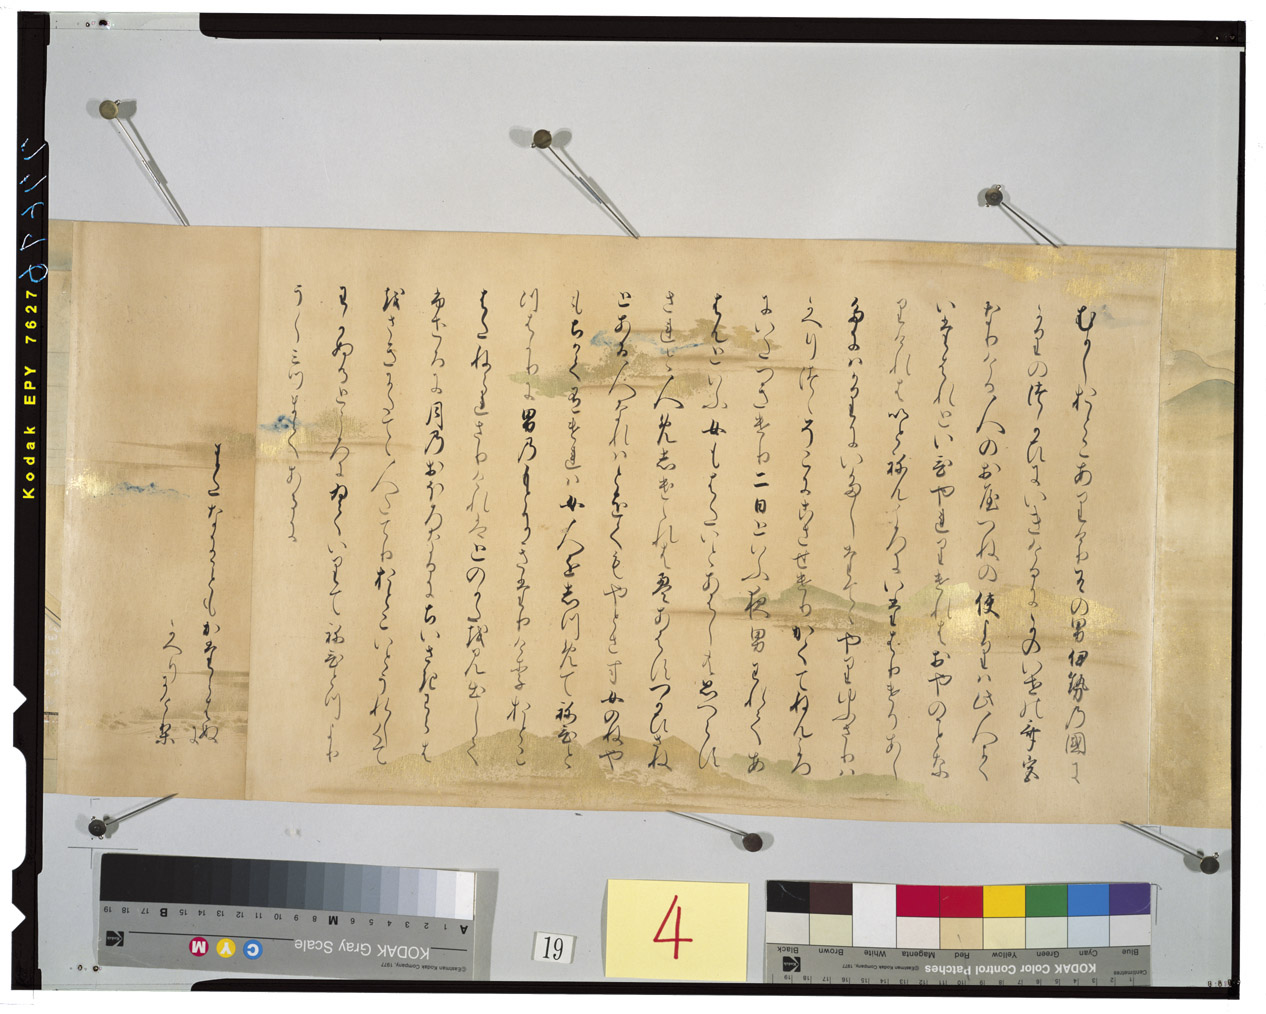 むかしおとこありけりその男伊勢乃國に
かりの使にいきけるにかのいせの斎宮
なりける人のおやつねの使よりは此人よく
いたはれといひやれりけれはおやのことな
りけれはいとねんころにいたはりけりあし
たにはかりにいたしたてゝやりゆふさりは
かへりつゝそこにこさせけりかくてねんころ
にいたつきけり二日といふ夜男われてあ
はんといふ女もはたいとあはしとも思へらす
されと人めしけけれはえあはすつかひさね
とある人なれはとをくもやとさす女のねや
もちかくありけれは女人をしつめてねひと
つはかりに男乃もとにきたりけりおとこ
はたねられさりけれはとのかたを見出して
ふせるに月乃おほろなるにちいさきわらは
をさきにたてゝ人たてりおとこいとうれしくて
わかぬるところにゐていりてねひとつより
うしみつまてあるに
またなにことも
かたらはぬに
かへりにけり
Kodak EPY 7627
4
19
KODAK Gray Scale
C Y M
A 1 2 3 4 5 6 M 8 9 10 11 12 13 14 15 B 17 18 19
KODAK Color Control Patches
Blue Cyan Green Yellow Red Magenta White Brown Black